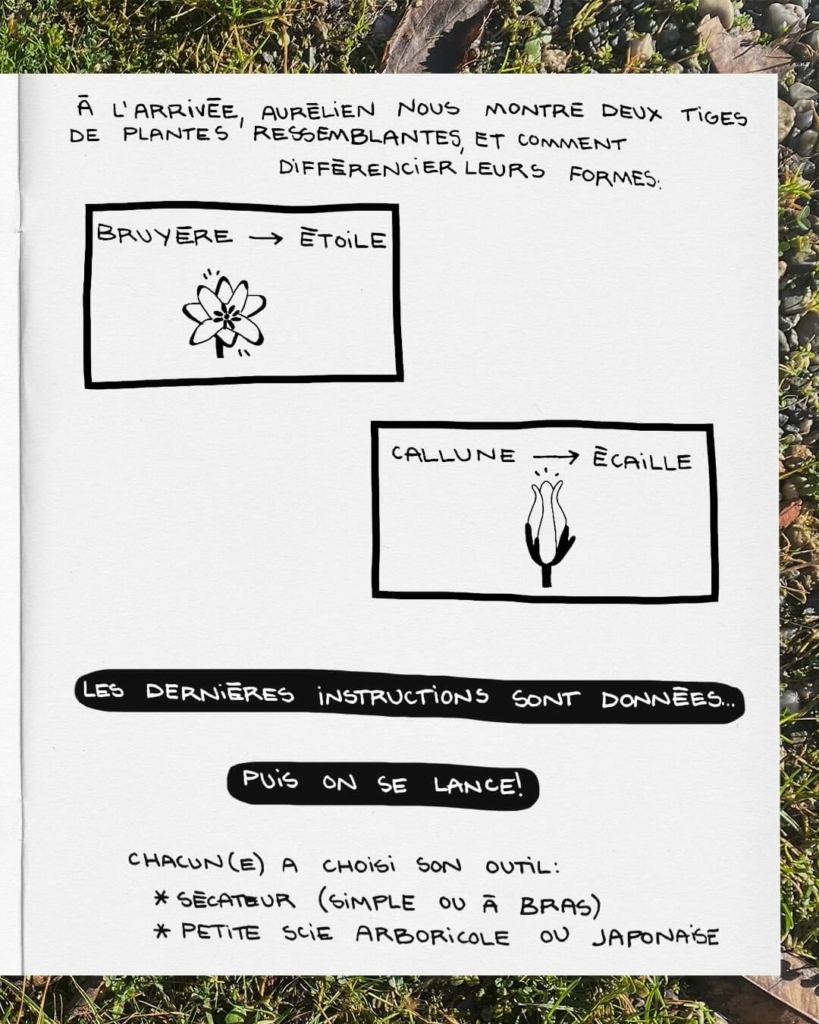 À L'ARRIVÉE, AURÉLIEN NOUS MONTRE DEUX TIGES
DE PLANTES RESSEMBLANTES, ET COMMENT
DIFFÉRENCIER LEURS FORMES:
BRUYÈRE → ÉTOILE
CALLUNE → ÉCAILLE
LES DERNIÈRES INSTRUCTIONS SONT DONNÉES...
PUIS ON SE LANCE!
CHACUN(E) A CHOISI SON OUTIL:
* SÉCATEUR (SIMPLE OU À BRAS)
* PETITE SCIE ARBORICOLE OU JAPONAISE